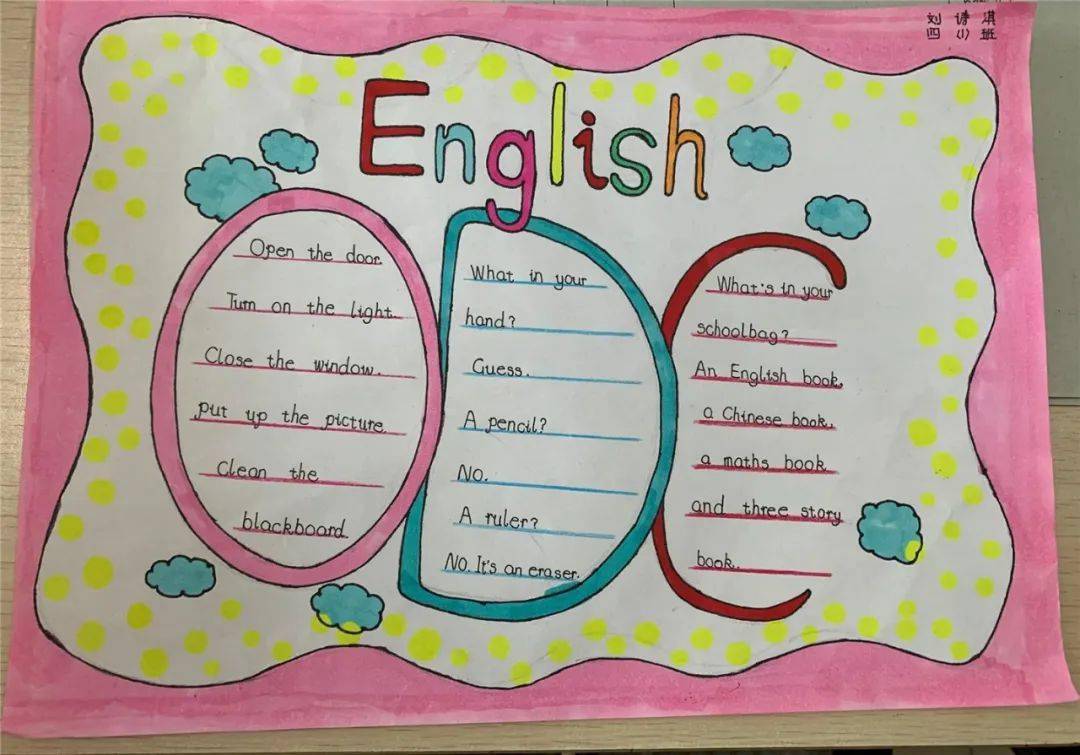 刘诗淇
四(1)班
English
Open the door.
Turn on the light.
Close the window.
put up the picture.
clean the
blackboard.
What in your
hand?
Guess.
A pencil?
No.
A ruler?
No. It's an eraser.
What's in your
schoolbag?
An English book,
a Chinese book,
a maths book
and three story
book.